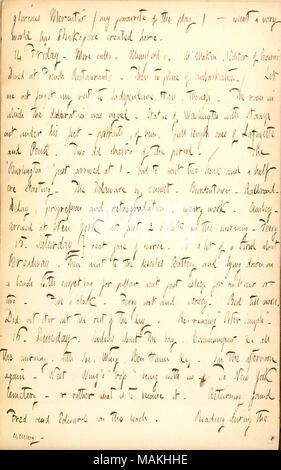 glorious Mercutio! (my favourite of the play,) — what a very
world has Shakspere created here.
14. Friday. More calls. Mumford's. McMakin, Editor of Courier
Dined at French Restaurant. Then to place of embarkation. / Let
me not forget we went to Independence Hall, though. The room in
which the declaration was signed. Statue of Washington with
out under his feet — portraits, of Penn, full length one of Lafayette
and Penn. Two old chairs of the period. / The
"Burlington" just arrived at 1 — had to wait two hours and a half
ere starting. The Delaware by sunset. Bordentown. Railroad.
Delay, progression and retrogradation, weary work. Amboy.
arrived at New York at past 2 o'clock in the morning. Ferry
15. Saturday. rest of a sort about
Broadway, then went to the deserted Battery and lying down on
a bench with carpet bag for pillow went fast asleep for an hour or
two. Five o'clock. Ferry boat and Jersey. Bed till noon.
Did not stir out the rest of the day. Re-reading
16. Sunday. about the bay, &c. all
this morning, with the In the afternoon
again — West Wing's "top" being with us — To New York
Cemetery — or rather what is to become it. Returning found
Fred and Edward on the beach. Reading during the
evening.
MAKHHE